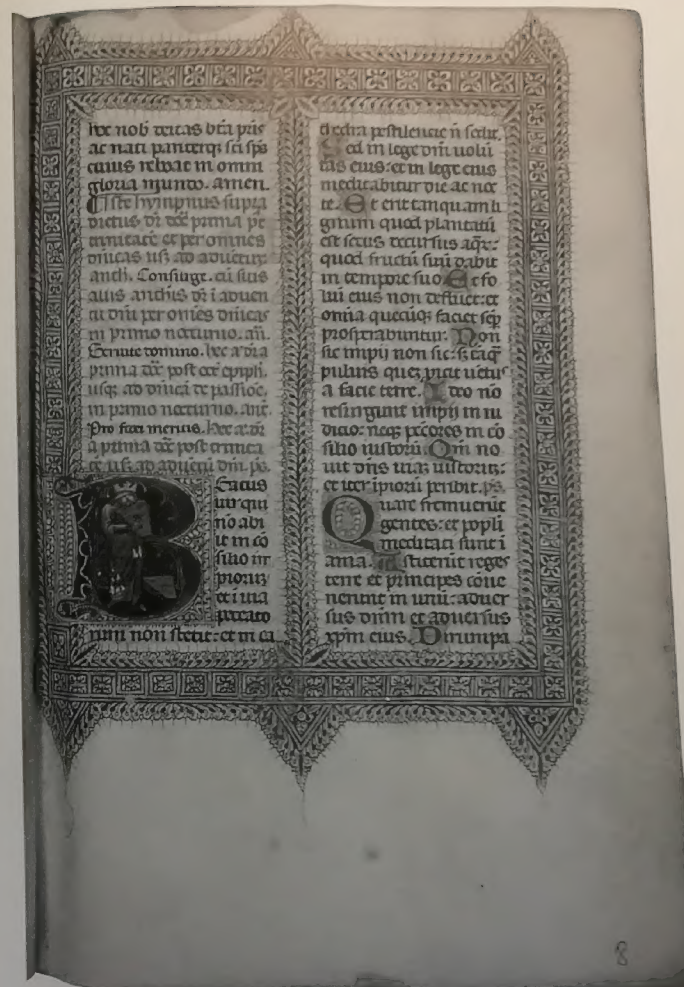 hec nob deitas bti pris
ac nati pariterqz sci sps
cuius reboat in omni
gloria mundo. amen.
Iste hympnus supra
dictus dr
omnes
dnicas usqz ad aduetum
anth. Consurge. cu suis
aliis anthis dr i aduen
tu dni per omes dnicas
in primo nocturno. an.
Seruite domino. hec a dr a
prima post oct epiph.
usqz ad dnica de passioe.
in primo nocturno. ant.
Pro fidei meritis. hec a dr
a prima post
usqz ad aduetu dni. ps.
Beatus
uir qui
no abi
it in co
silio im
piorum
et i uia
peccato
rum non stetit: et in ca
thedra pestilencie n sedit.
Sed in lege dni uolu
tas eius: et in lege eius
meditabitur die ac noc
te. Et erit tanquam li
gnum quod plantatu
est secus decursus aqr:
quod fructu suu dabit
in tempore suo. Et fo
liu eius non defluet: et
omia quecuqz faciet sep
prosperabuntur. Non
sic impii non sic: s tanqz
puluis que picit uetus
a facie terre. Ideo no
resurgunt impii in iu
dicio: neqz peccores in co
silio iustoru. Qm no
uit dns uiaz iustoruz:
et iter ipioru peribit. ps.
Quare fremuerut
gentes: et popli
meditati sunt i
ania. Astiterut reges
terre et principes coue
nerunt in unu: aduer
sus dnm et aduersus
xpm eius. Dirumpa
8